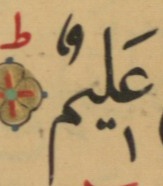 عَلِيمٌ ط